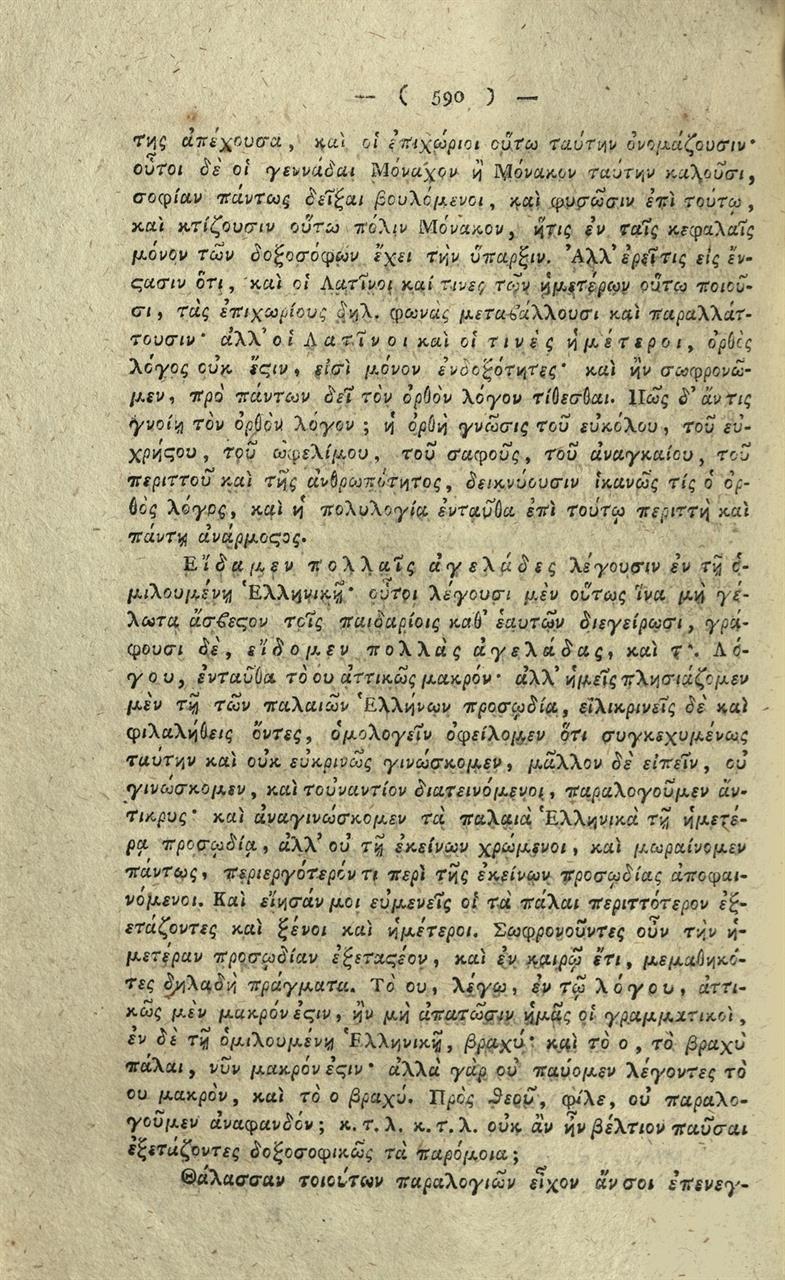 — ( 590 ) —
της ἀπέχουσα, καὶ οἱ ἐπιχώριοι οὕτω ταύτην ὀνομάζουσιν·
οὗτοι δὲ οἱ γεννάδαι Μόναχον ἢ Μόνακον ταύτην καλοῦσι,
σοφίαν πάντως δεῖξαι βουλόμενοι, καὶ φυσῶσιν ἐπὶ τούτῳ,
καὶ κτίζουσιν οὕτω πόλιν Μόνακον, ἥτις ἐν ταῖς κεφαλαῖς
μόνον τῶν δοξοσόφων ἔχει τὴν ὕπαρξιν. Ἀλλ' ἐρεῖτις εἰς ἔν-
ϛασιν ὅτι, καὶ οἱ Λατῖνοι καί τινες τῶν ἡμετέρων οὕτω ποιοῦ-
σι, τὰς ἐπιχωρίους δηλ. φωνὰς μεταβάλλουσι καὶ παραλλάτ-
τουσιν· ἀλλ' οἱ Λατῖνοι καὶ οἱ τινὲς ἡμέτεροι, ὀρθὸς
λόγος οὐκ ἔϛιν, εἰσὶ μόνον ἐνδοξότητες· καὶ ἢν σωφρονῶ-
μεν, πρὸ πάντων δεῖ τὸν ὀρθὸν λόγον τίθεσθαι. Πῶς δ' ἄν τις
γνοίη τὸν ὀρθὸν λόγον; ἡ ὀρθὴ γνῶσις τοῦ εὐκόλου, τοῦ εὐ-
χρήϛου, τοῦ ὠφελίμου, τοῦ σαφοῦς, τοῦ ἀναγκαίου, τοῦ
περιττοῦ καὶ τῆς ἀνθρωπότητος, δεικνύουσιν ἱκανῶς τίς ὁ ὀρ-
θὸς λόγος, καὶ ἡ πολυλογία ἐνταῦθα ἐπὶ τούτῳ περιττὴ καὶ
πάντῃ ἀνάρμοϛος.
Εἴδαμεν πολλαῖς ἀγελάδες λέγουσιν ἐν τῇ ὁ-
μιλουμένῃ Ἑλληνικῇ· οὗτοι λέγουσι μὲν οὕτως ἵνα μὴ γέ-
λωτα ἄσβεϛον τοῖς παιδαρίοις καθ' ἑαυτῶν διεγείρωσι, γρά-
φουσι δὲ, εἴδομεν πολλὰς ἀγελάδας, καὶ τ'. Λό-
γου, ἐνταῦθα τὸ ου ἀττικῶς μακρόν· ἀλλ' ἡμεῖς πλησιάζομεν
μὲν τῇ τῶν παλαιῶν Ἑλλήνων προσῳδίᾳ, εἰλικρινεῖς δὲ καὶ
φιλαλήθεις ὄντες, ὁμολογεῖν ὀφείλομεν ὅτι συγκεχυμένως
ταύτην καὶ οὐκ εὐκρινῶς γινώσκομεν, μᾶλλον δὲ εἰπεῖν, οὐ
γινώσκομεν, καὶ τοὐναντίον διατεινόμενοι, παραλογοῦμεν ἄν-
τικρυς· καὶ ἀναγινώσκομεν τὰ παλαιὰ Ἑλληνικὰ τῇ ἡμετέ-
ρᾳ προσῳδίᾳ, ἀλλ' οὐ τῇ ἐκείνων χρώμενοι, καὶ μωραίνομεν
πάντως, περιεργότερόν τι περὶ τῆς ἐκείνων προσῳδίας ἀποφαι-
νόμενοι. Καὶ εἴησάν μοι εὐμενεῖς οἱ τὰ πάλαι περιττότερον ἐξ-
ετάζοντες καὶ ξένοι καὶ ἡμέτεροι. Σωφρονοῦντες οὖν τὴν ἡ-
μετέραν προσῳδίαν ἐξεταϛέον, καὶ ἐν καιρῷ ἔτι, μεμαθηκό-
τες δηλαδὴ πράγματα. Τὸ ου, λέγω, ἐν τῷ λόγου, ἀττι-
κῶς μὲν μακρόν ἐϛιν, ἢν μὴ ἀπατῶσιν ἡμᾶς οἱ γραμματικοὶ,
ἐν δὲ τῇ ὁμιλουμένῃ Ἑλληνικῇ, βραχύ· καὶ τὸ ο, τὸ βραχὺ
πάλαι, νῦν μακρόν ἐϛιν· ἀλλὰ γὰρ οὐ παύομεν λέγοντες τὸ
ου μακρὸν, καὶ τὸ ο βραχύ. Πρὸς Θεοῦ, φίλε, οὐ παραλο-
γοῦμεν ἀναφανδόν; κ. τ. λ. κ. τ. λ. οὐκ ἂν ἦν βέλτιον παῦσαι
ἐξετάζοντες δοξοσοφικῶς τὰ παρόμοια;
Θάλασσαν τοιούτων παραλογιῶν εἶχον ἄν σοι ἐπενεγ-